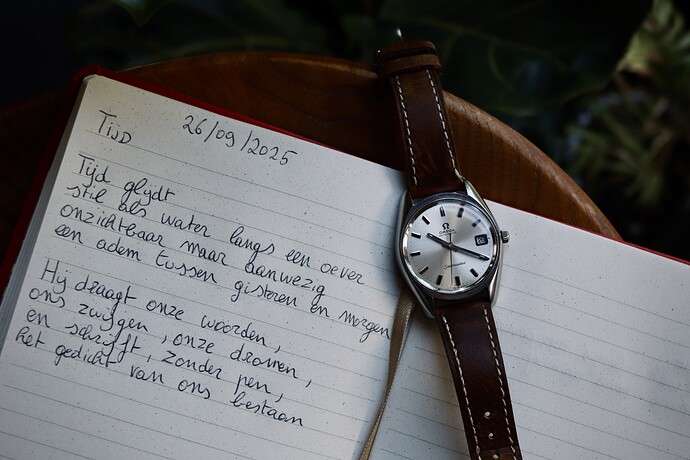 Tijd
26/09/2025
Tijd glijdt
stil als water langs een oever
onzichtbaar maar aanwezig
een adem tussen gisteren en morgen
Hij draagt onze woorden,
ons zwijgen, onze dromen,
en schrijft, zonder pen,
het gedicht van ons bestaan
Ω
OMEGA